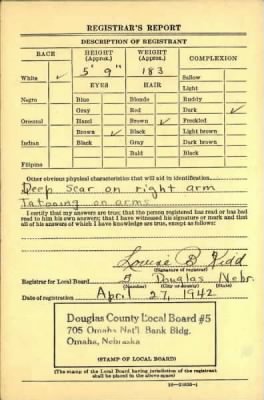 REGISTRAR'S REPORT
DESCRIPTION OF REGISTRANT
RACE HEIGHT (Approx.) WEIGHT (Approx.) COMPLEXION
5' 9" 183
White ✓ Sallow
EYES HAIR Light
Negro Blue Blonde Ruddy
Gray Red Dark ✓
Oriental Hazel Brown ✓ Freckled
Brown ✓ Black Light brown
Indian Black Gray Dark brown
Bald Black
Filipino
Other obvious physical characteristics that will aid in identification
Deep Scar on right arm
Tatooing on arms
I certify that my answers are true; that the person registered has read or has had
read to him his own answers; that I have witnessed his signature or mark and that
all of his answers of which I have knowledge are true, except as follows:
Louise B Kidd
(Signature of registrar)
Registrar for Local Board 5 Douglas Nebr.
(Number) (City or county) (State)
Date of registration April 27, 1942
Douglas County Local Board #5
705 Omaha Nat'l. Bank Bldg.
Omaha, Nebraska
(STAMP OF LOCAL BOARD)
(The stamp of the Local Board having jurisdiction of the registrant
shall be placed in the above space)